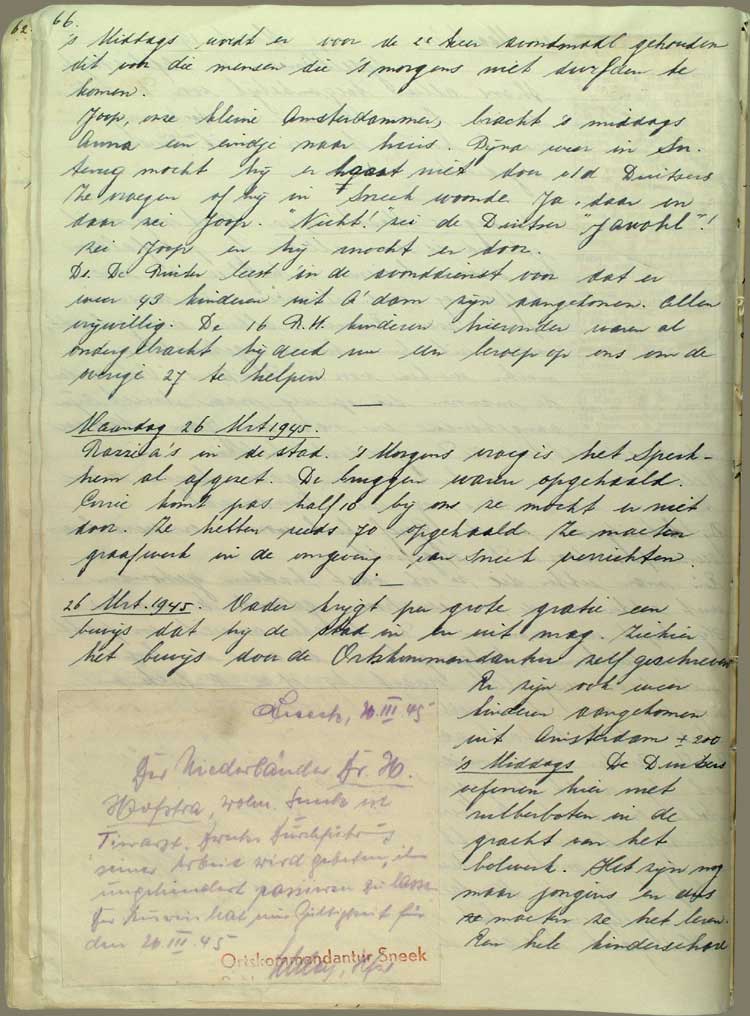 62.
66.
's Middags wordt er voor de 2e keer avondmaal gehouden
dit voor die mensen die 's morgens niet durfden te
komen.
Joop, onze kleine Amsterdammer, bracht 's middags
Anna een eindje naar huis. Bijna weer in Sn.
terug mocht hij er haast niet door v/d Duitsers
Ze vroegen of hij in Sneek woonde. Ja, daar en
daar zei Joop. "Nicht!" zei de Duitser "Jawohl"!
zei Joop en hij mocht er door.
Ds. De Ruiter leest in de avonddienst voor dat er
weer 43 kinderen uit A'dam zijn aangekomen. Allen
vrijwillig. De 16 R.K. kinderen hieronder waren al
ondergebracht hij deed nu een beroep op ons om de
overige 27 te helpen
Maandag 26 Mrt 1945.
Razzia's in de stad. 's Morgens vroeg is het Sperk-
hem al afgezet. De bruggen waren opgehaald.
Corrie komt pas half 10 bij ons ze mocht er niet
door. Ze hebben reeds 70 opgehaald. Ze moeten
graafwerk in de omgeving van Sneek verrichten.
26 Mrt. 1945. Vader krijgt per grote gratie een
bewijs dat hij de stad in en uit mag. Ziehier
het bewijs door de Ortskommandantur zelf geschreven
Er zijn ook weer
kinderen aangekomen
uit Amsterdam ± 200
's Middags De Duitsers
oefenen hier met
rubberboten in de
gracht van het
bolwerk. Het zijn nog
maar jongens en dus
moeten ze het leren.
Een hele kinderschaar
Sneek, 26 III 45
Der Niederländer Dr. H.
Hofstra, wohn. Sneek ist
Tierarzt. Zwecks Durchführung
seiner Arbeit wird gebeten, ihn
ungehindert passieren zu lassen
Der Ausweis hat nur Gültigkeit für
den 26 III 45
Ortskommandantur Sneek